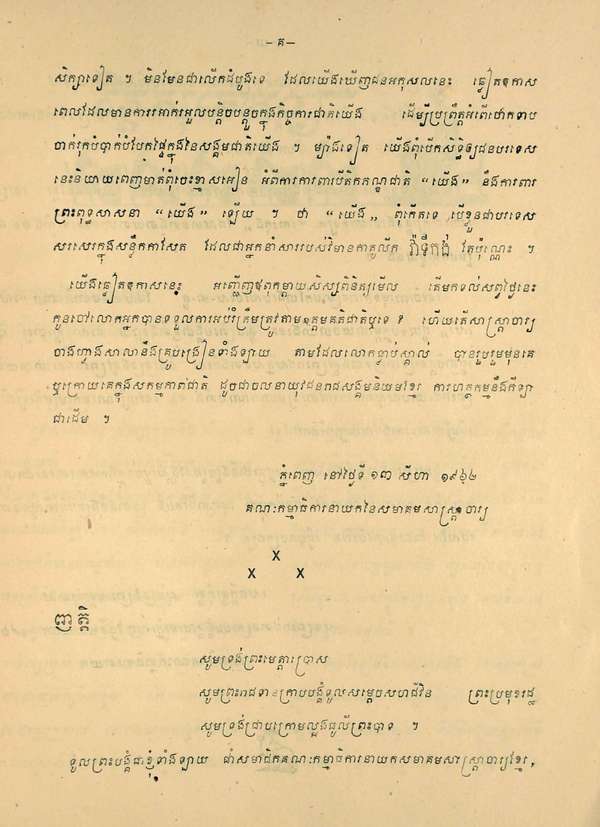 – គ –
សិក្សាទៀត ។ មិនមែនជាលើកដំបូងទេ ដែលយើងឃើញជនអកុសលនេះ ឆ្លៀតឱកាស
ពេលដែលមានការរអាក់រអួលបន្តិចបន្តួចក្នុងកិច្ចការជាតិយើង ដើម្បីប្រព្រឹត្តអំពើថោកទាប
ចាក់រុកបំបាក់បំបែកផ្ទៃក្នុងនៃសង្គមជាតិយើង ។ ម្យ៉ាងទៀត យើងពុំបើកសិទ្ធិឲ្យជនបរទេស
នេះនិយាយពេញមាត់ពុំចេះខ្មាសអៀន អំពីការការពារបីតិកភណ្ឌជាតិ “យើង” នឹងការពារ
ព្រះពុទ្ធសាសនា “យើង” ឡើយ ។ ថា “យើង” ពុំកើតទេ បើខ្លួនជាបរទេស
សរសេរក្នុងសន្លឹកកាសែត ដែលជាអ្នកនាំសាររបស់វិមានកាតូលីក វ៉ាទីកង់ តែប៉ុណ្ណេះ ។
យើងឆ្លៀតឱកាសនេះ អញ្ជើញឪពុកម្ដាយសិស្សពិនិត្យមើល តើមកទល់សព្វថ្ងៃនេះ
កូនចៅលោកអ្នកបានទទួលការអប់រំត្រឹមត្រូវតាមឧត្តមគតិជាតិឬទេ ? ហើយតើសាស្ត្រាចារ្យ
ចាងហ្វាងសាលានឹងគ្រូបង្រៀនទាំងឡាយ តាមដែលលោកធ្លាប់ស្គាល់ បានរួបរួមមុនគេ
ឬក្រោយគេក្នុងសកម្មភាពជាតិ ដូចជាចលនាយុវជនរាជសង្គមនិយមខ្មែរ ការហត្ថកម្មនឹងកីឡា
ជាដើម ។
ភ្នំពេញ នៅថ្ងៃទី ១៣ សីហា ១៩៦៤
គណៈកម្មាធិការនាយកនៃសមាគមសាស្ត្រាចារ្យ
X
X X
ញត្តិ
សូមទ្រង់ព្រះមេត្តាប្រោស
សូមព្រះរាជទានក្រាបបង្គំទូលសម្ដេចសហជីវិន ព្រះប្រមុខរដ្ឋ
សូមទ្រង់ជ្រាបក្រោមល្អងធូលីព្រះបាទ ។
ទូលព្រះបង្គំជាខ្ញុំទាំងឡាយ ជាសមាជិកគណៈកម្មាធិការនាយកសមាគមសាស្ត្រាចារ្យខ្មែរ,